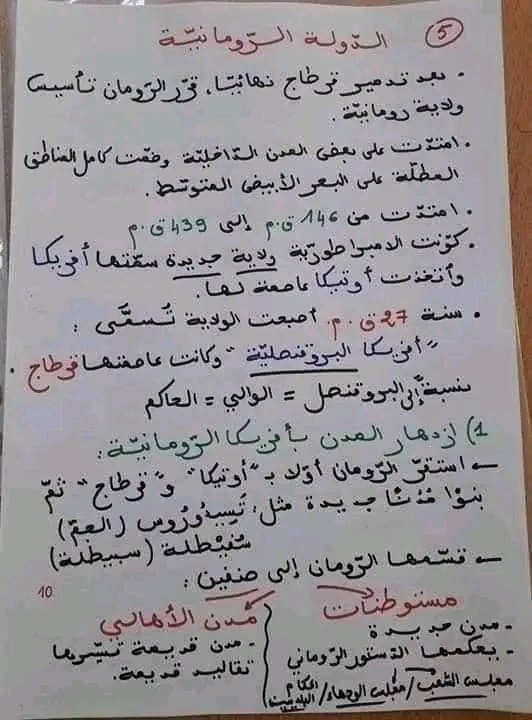 5
الدولة الرّومانيّة
• بعد تدمير قرطاج نهائيّا، قرّر الرّومان تأسيس
ولاية رومانيّة.
• امتدّت على بعض المدن الدّاخليّة وضمّت كامل المناطق
المطلّة على البحر الأبيض المتوسّط.
• امتدّت من 146 ق.م إلى 439 ق.م
• كوّنت الامبراطوريّة ولاية جديدة سمّتها أفريكا
وأتّخذت أوتيكا عاصمة لها.
• سنة 27 ق.م. أصبحت الولاية تُسمَّى :
"أفريكا البروقنصليّة" وكانت عاصمتها قرطاج.
نسبة إلى البروقنصل = الوالي = الحاكم
1) ازدهار المدن بأفريكا الرّومانيّة :
← استقرّ الرّومان أوّلا بـ "أوتيكا" و"قرطاج" ثمّ
بنوا مُدُنًا جديدة مثل: تيسدوروس (الجم)
سُفيطلة (سبيطلة)
← قسّمها الرّومان إلى صنفين :
10
مستوطنات
مُدن الأهالي
- مدن جديدة
- يحكمها الدّستور الرّوماني
مجلس الشّعب / مجلس الوجهاء / الحكام
- مدن قديمة تسيّرها
تقاليد قديمة.